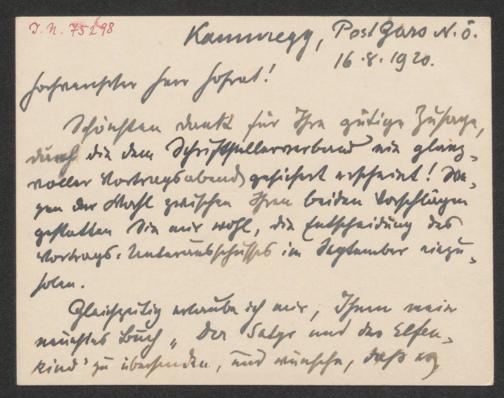 J. N. 75298
Kammregg, Post Gars N.Ö.
16.8.1920.
Hochverehrter Herr Hofrat!
Schönsten Dank für Ihre gütige Zusage,
durch die dem Schriftstellerverband ein glanz-
voller Vortragsabend gesichert erscheint! We-
gen der Wahl zwischen Ihren beiden Vorschlägen
gestatten Sie mir wohl, die Entscheidung des
Vortrags-Unterausschusses im September einzu-
holen.
Gleichzeitig erlaube ich mir, Ihnen mein
neuestes Buch „Der Satyr und das Elfen-
kind" zu übersenden, und wünsche, daß es